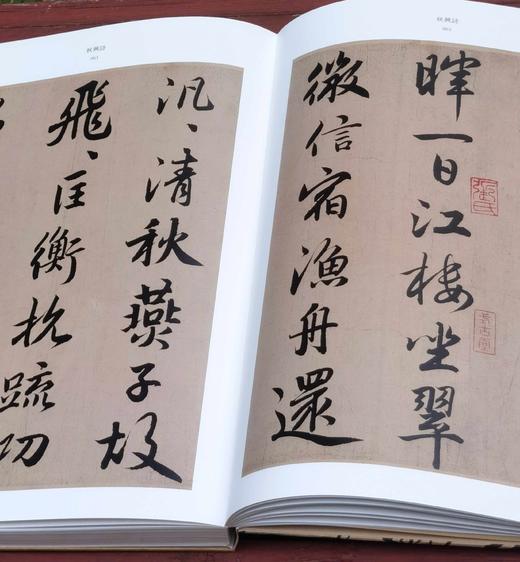 秋興詩
暉一日江樓坐翠
微信宿漁舟還
秋興詩
汎〻清秋燕子故
飛〻匡衡抗疏功